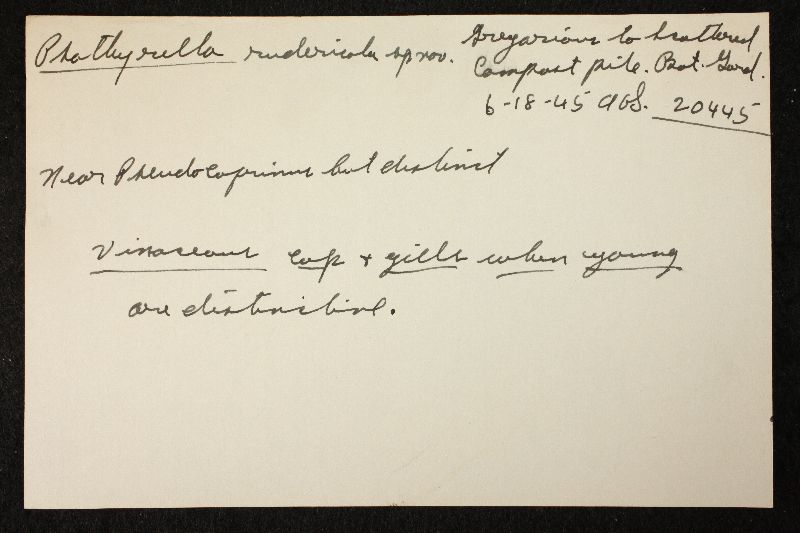 Psathyrella rudericola sp nov.
Gregarious to scattered
Compost pile. Bot. Gard.
6-18-45 AHS. 20445
Near Pseudocoprinus but distinct
Vinaceous cap + gills when young
are distinctive.